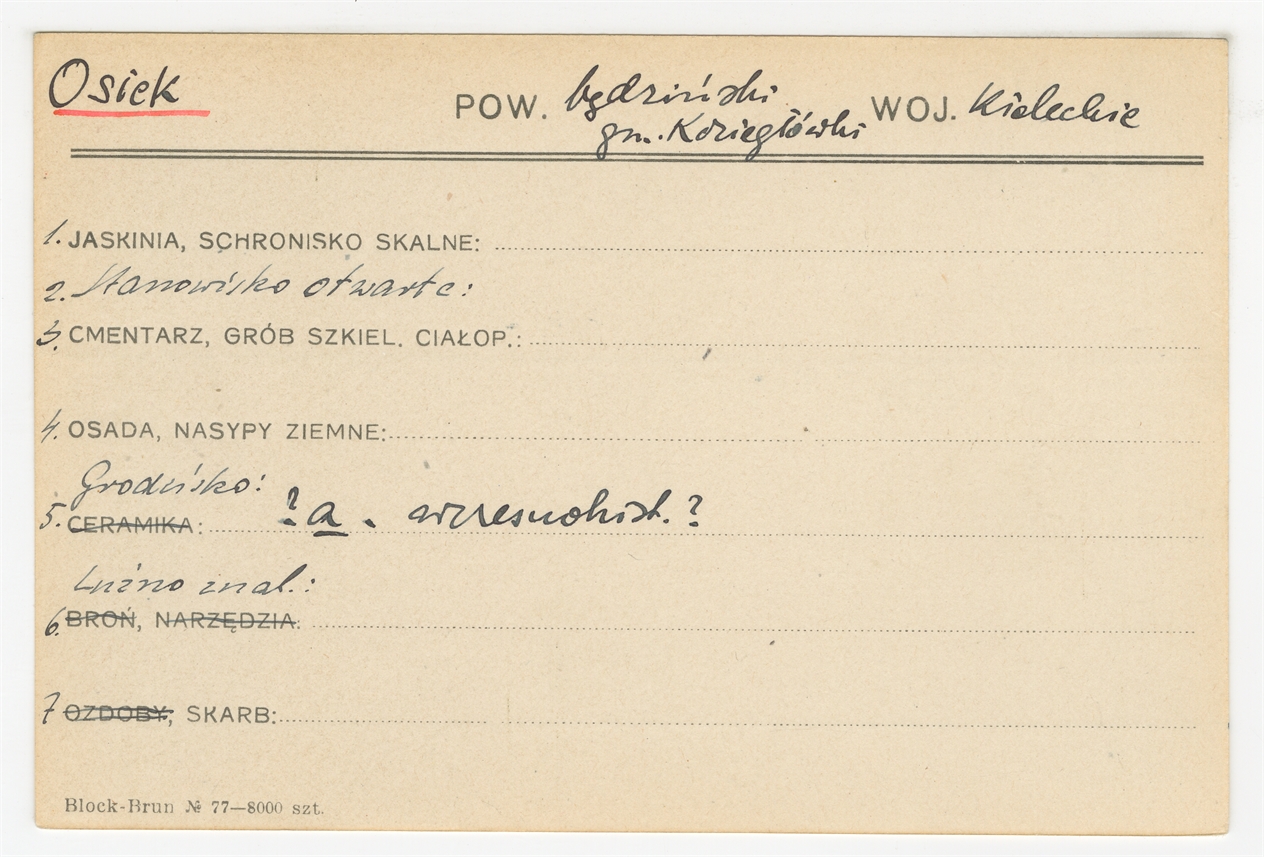 Osiek
POW. będziński WOJ. Kieleckie
gm. Koziegłówki
1. JASKINIA, SCHRONISKO SKALNE:
2. Stanowisko otwarte:
3. CMENTARZ, GRÓB SZKIEL. CIAŁOP.:
4. OSADA, NASYPY ZIEMNE:
Grodzisko:
5. CERAMIKA: ? a. wczesnohist.?
Luźno znal.:
6. BROŃ, NARZĘDZIA:
7 OZDOBY, SKARB:
Block-Brun № 77—8000 szt.